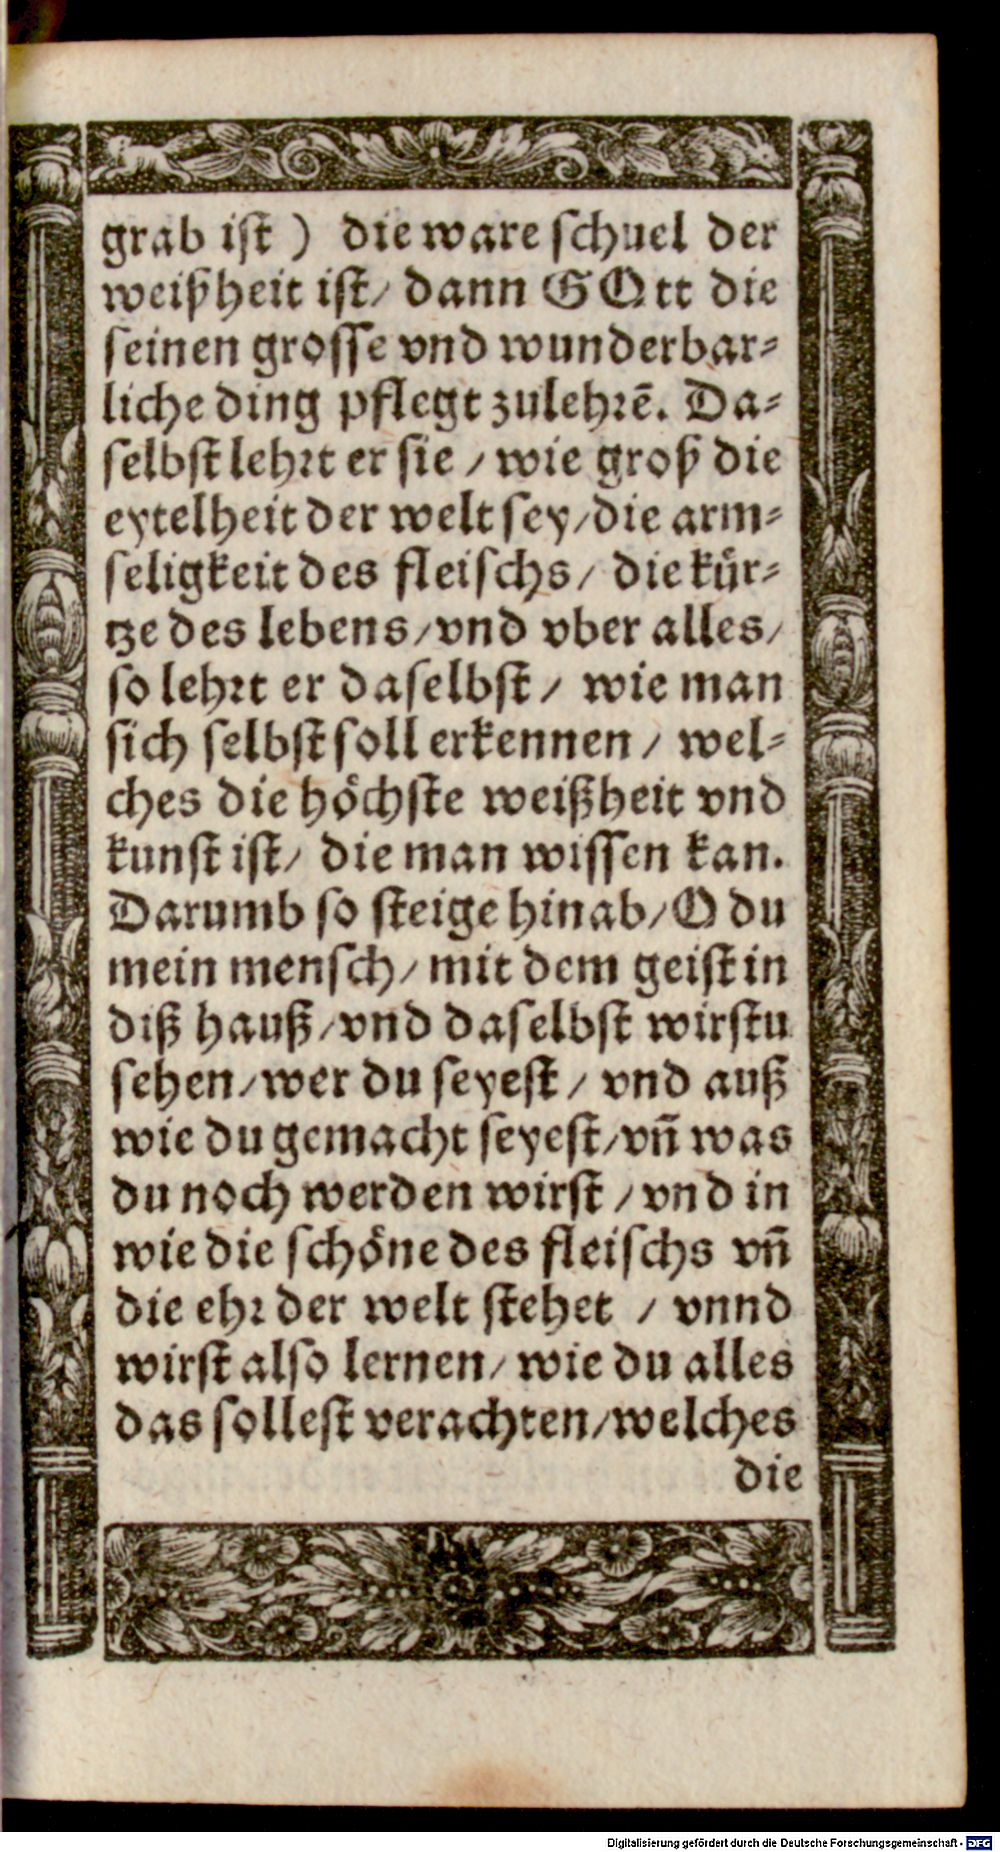 grab ist) die ware schuel der
weißheit ist/ dann GOtt die
seinen grosse vnd wunderbar⸗
liche ding pflegt zulehrē. Da⸗
selbst lehrt er sie / wie groß die
eytelheit der welt sey/die arm⸗
seligkeit des fleischs/ die kür⸗
tze des lebens/vnd vber alles/
so lehrt er daselbst/ wie man
sich selbst soll erkennen/ wel⸗
ches die höchste weißheit vnd
kunst ist/ die man wissen kan.
Darumb so steige hinab/O du
mein mensch/ mit dem geist in
diß hauß/vnd daselbst wirstu
sehen/wer du seyest/ vnd auß
wie du gemacht seyest/vn̄ was
du noch werden wirst / vnd in
wie die schöne des fleischs vn̄
die ehr der welt stehet / vnnd
wirst also lernen/ wie du alles
das sollest verachten/welches
die
Digitalisierung gefördert durch die Deutsche Forschungsgemeinschaft - DFG